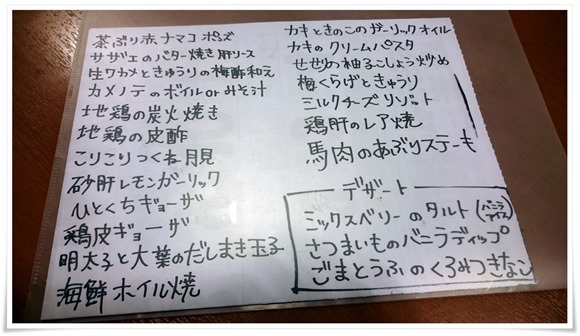 茶ぶり赤ナマコ ポズ
サザエのバター焼き肝ソース
生ワカメときゅうりの梅酢和え
カメノテのボイル or みそ汁
地鶏の炭火焼き
地鶏の皮酢
こりこりつくね月見
砂肝レモンガーリック
ひとくちギョーザ
鶏皮ギョーザ
明太子と大葉のだしまき玉子
海鮮ホイル焼
カキときのこのガーリックオイル
カキのクリームパスタ
せせりの柚子こしょう炒め
梅くらげときゅうり
ミルクチーズリゾット
鶏肝のレア焼
馬肉のあぶりステーキ
デザート
ミックスベリーのタルト(バニラアイス)
さつまいものバニラディップ
ごまとうふのくるみつきなこ